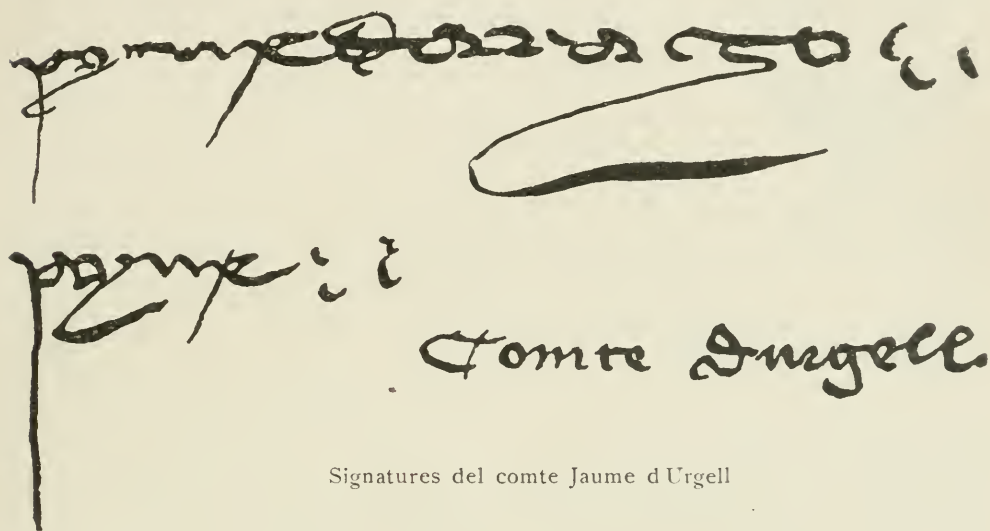 Jayme Darago
Jayme
Comte Durgell
Signatures del comte Jaume d Urgell